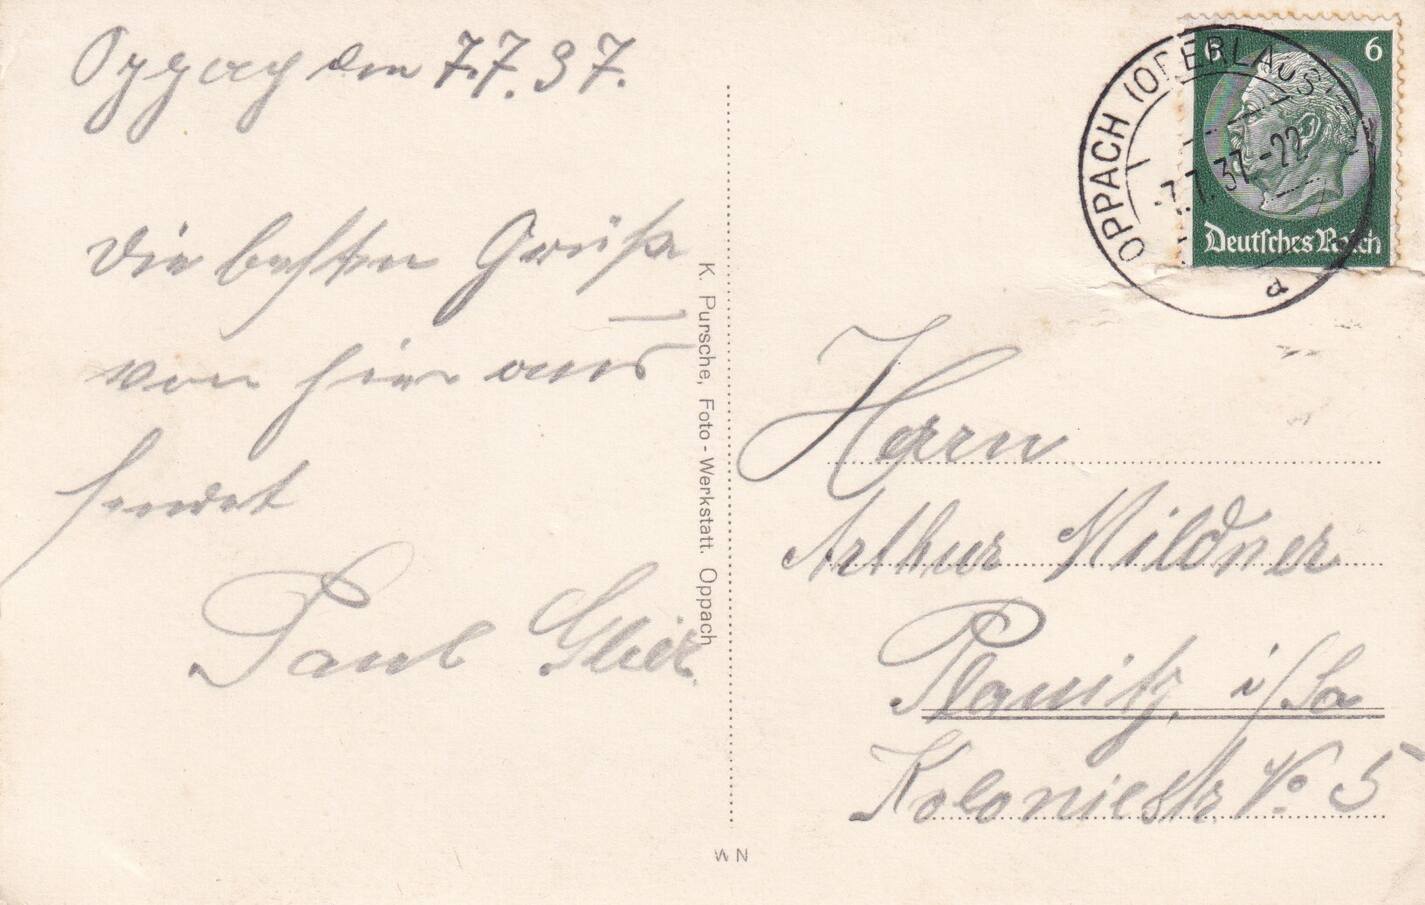 Oppach den 7.7.37.
Die besten Grüße
von hier aus
sendet
Paul Glier.
K. Pursche, Foto-Werkstatt. Oppach
W N
OPPACH (OBERLAUSITZ)
-7.7.37.-22
a
6 6
Deutsches Reich
Herrn
Arthur Mildner
Planitz, i/Sa
Koloniestr No 5